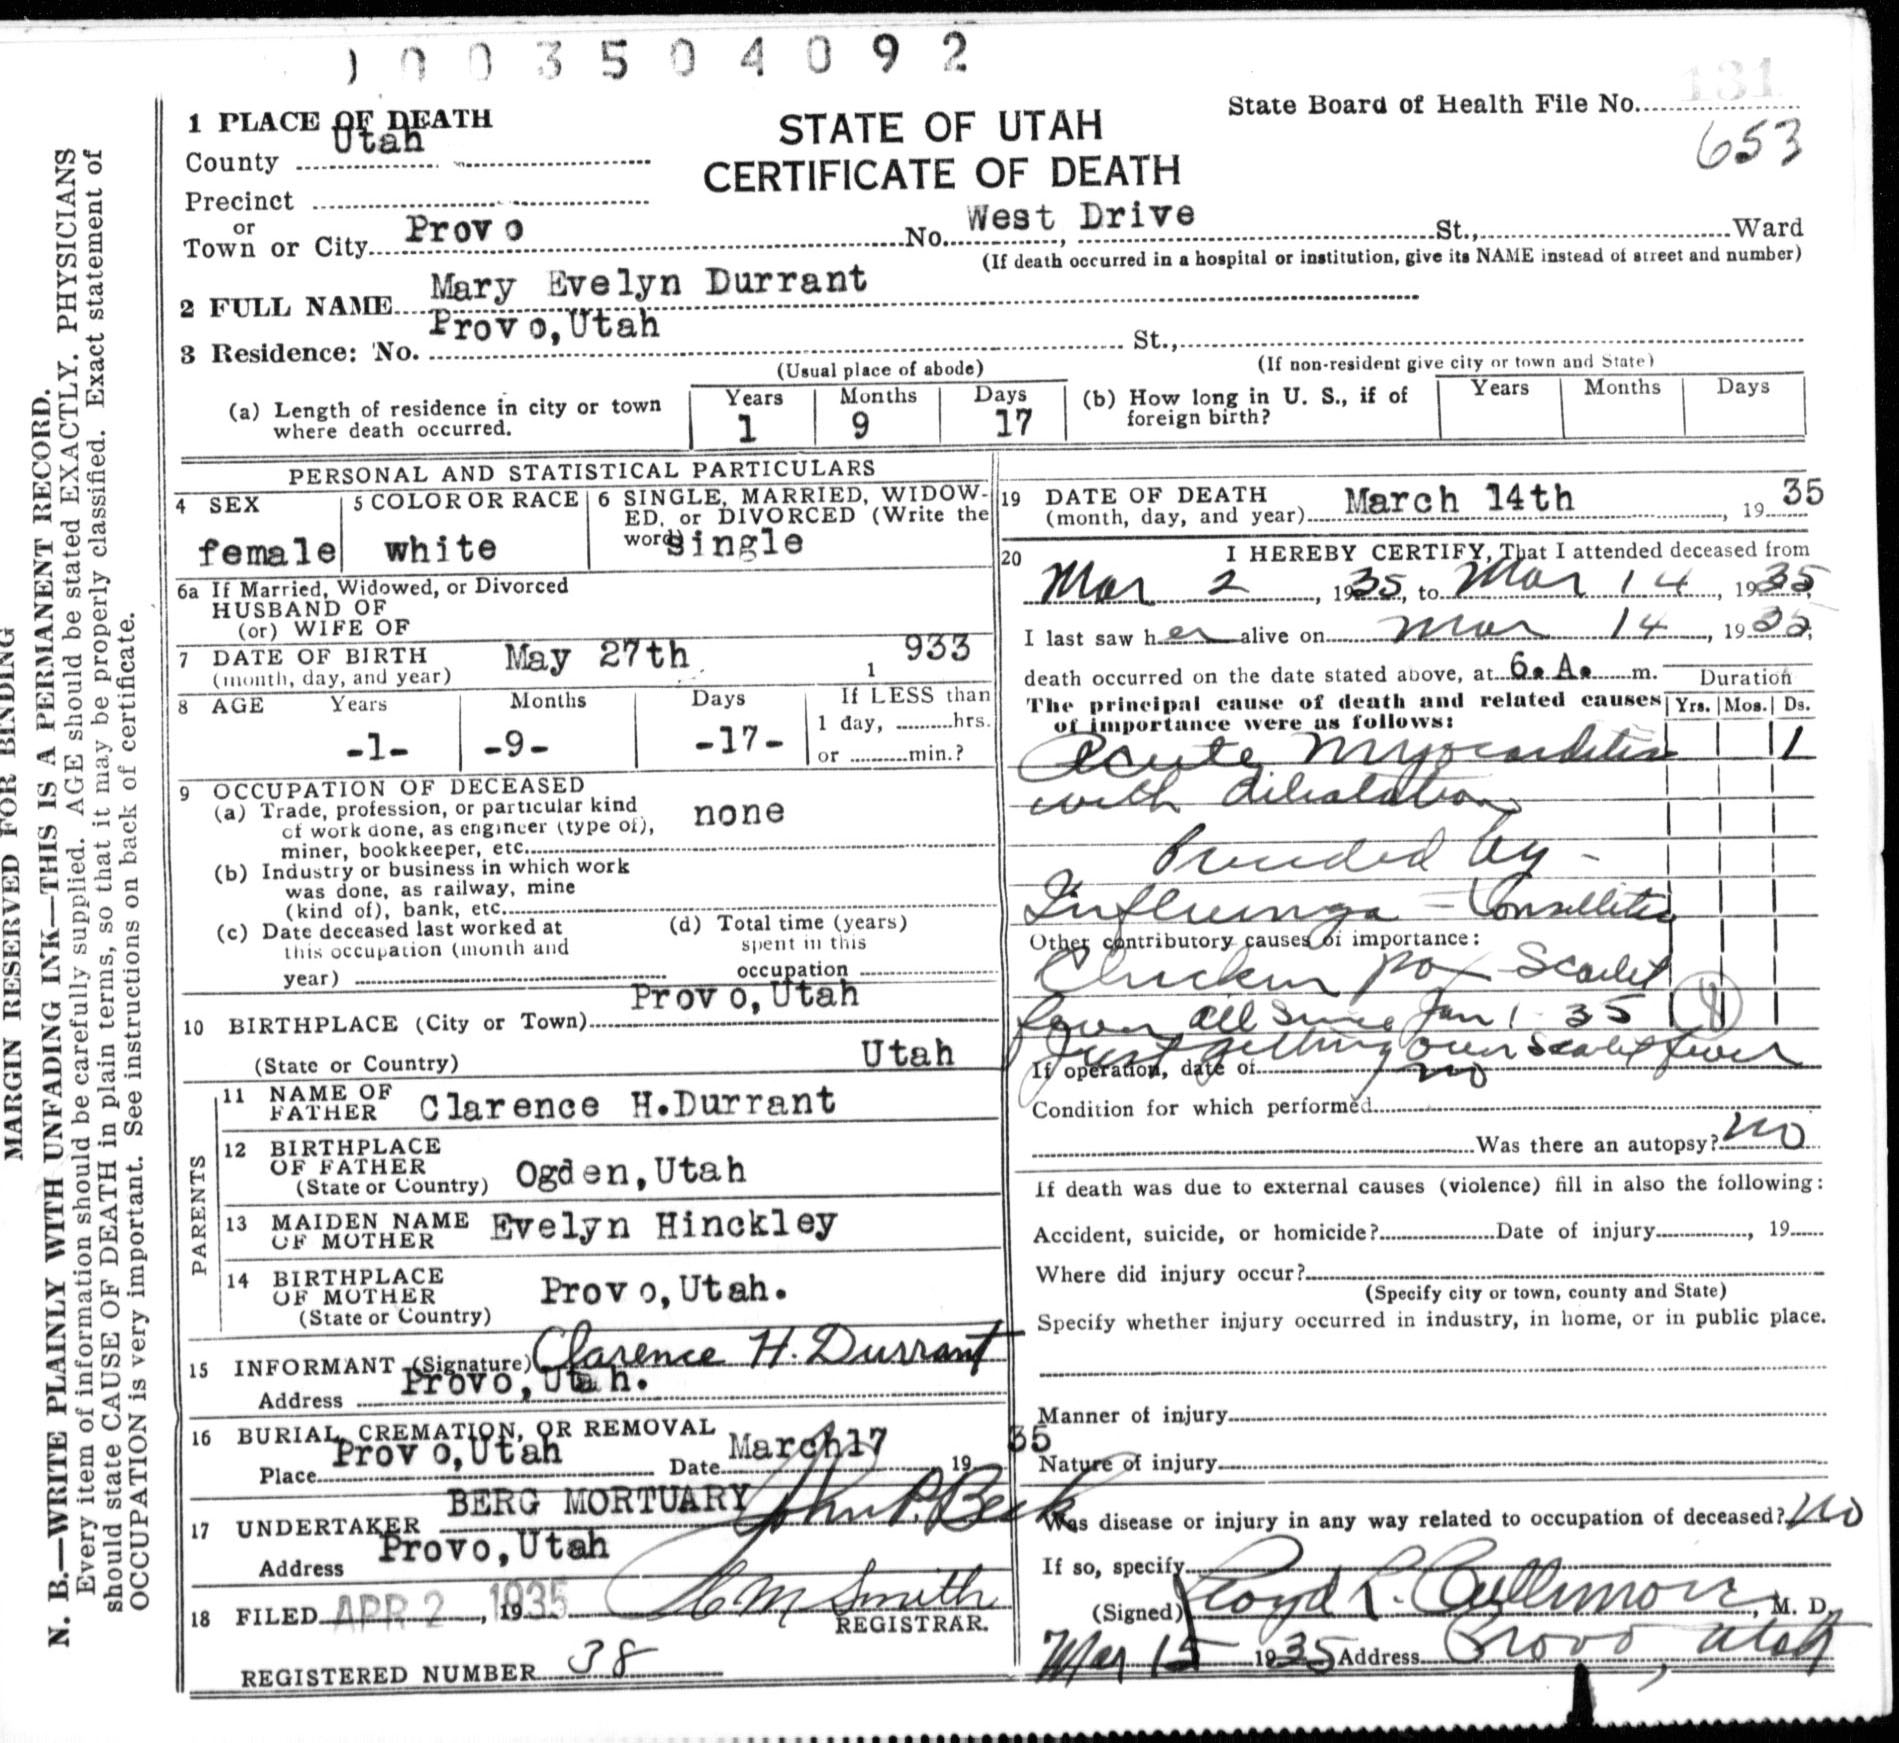 1003504092
131
1 PLACE OF DEATH
STATE OF UTAH
State Board of Health File No.
653
County Utah
CERTIFICATE OF DEATH
Precinct
or
Town or City Provo No. West Drive St., Ward
(If death occurred in a hospital or institution, give its NAME instead of street and number)
2 FULL NAME Mary Evelyn Durrant
3 Residence: No. Provo, Utah St.,
(Usual place of abode) (If non-resident give city or town and State)
(a) Length of residence in city or town where death occurred. Years 1 Months 9 Days 17
(b) How long in U. S., if of foreign birth? Years Months Days
PERSONAL AND STATISTICAL PARTICULARS
4 SEX female
5 COLOR OR RACE white
6 SINGLE, MARRIED, WIDOWED, or DIVORCED (Write the word) single
6a If Married, Widowed, or Divorced
HUSBAND OF
(or) WIFE OF
7 DATE OF BIRTH May 27th 1933
(month, day, and year)
8 AGE Years Months Days If LESS than
-1- -9- -17- 1 day, hrs.
or min.?
9 OCCUPATION OF DECEASED
(a) Trade, profession, or particular kind
of work done, as engineer (type of),
miner, bookkeeper, etc. none
(b) Industry or business in which work
was done, as railway, mine
(kind of), bank, etc.
(c) Date deceased last worked at
this occupation (month and
year)
(d) Total time (years)
spent in this
occupation
10 BIRTHPLACE (City or Town) Provo, Utah
(State or Country) Utah
PARENTS
11 NAME OF FATHER Clarence H. Durrant
12 BIRTHPLACE OF FATHER Ogden, Utah
(State or Country)
13 MAIDEN NAME OF MOTHER Evelyn Hinckley
14 BIRTHPLACE OF MOTHER Provo, Utah.
(State or Country)
15 INFORMANT (Signature) Clarence H. Durrant
Address Provo, Utah.
16 BURIAL, CREMATION, OR REMOVAL
Place Provo, Utah Date March 17 1935
17 UNDERTAKER BERG MORTUARY John P. Beck
Address Provo, Utah
18 FILED APR 2, 1935 Smith
REGISTRAR.
REGISTERED NUMBER 38
19 DATE OF DEATH March 14th, 1935
(month, day, and year)
20 I HEREBY CERTIFY, That I attended deceased from
Mar 2, 1935, to Mar 14, 1935,
I last saw her alive on Mar 14, 1935,
death occurred on the date stated above, at 6. A. m. Duration
The principal cause of death and related causes Yrs. Mos. Ds.
of importance were as follows:
Acute Myocarditis 1
with dilatation
Preceded by -
Influenza = Tonsillitis
Other contributory causes of importance:
Chicken pox Scarlet
fever all since Jan 1 35
Just getting over scarlet fever
If operation, date of no
Condition for which performed
Was there an autopsy? no
If death was due to external causes (violence) fill in also the following:
Accident, suicide, or homicide? Date of injury, 19
Where did injury occur?
(Specify city or town, county and State)
Specify whether injury occurred in industry, in home, or in public place.
Manner of injury
Nature of injury
Was disease or injury in any way related to occupation of deceased? no
If so, specify
(Signed) Floyd L. Cullimore, M. D.
Mar 15 1935 Address Provo, Utah
MARGIN RESERVED FOR BINDING
N. B.—WRITE PLAINLY WITH UNFADING INK—THIS IS A PERMANENT RECORD.
Every item of information should be carefully supplied. AGE should be stated EXACTLY. PHYSICIANS
should state CAUSE OF DEATH in plain terms, so that it may be properly classified. Exact statement of
OCCUPATION is very important. See instructions on back of certificate.